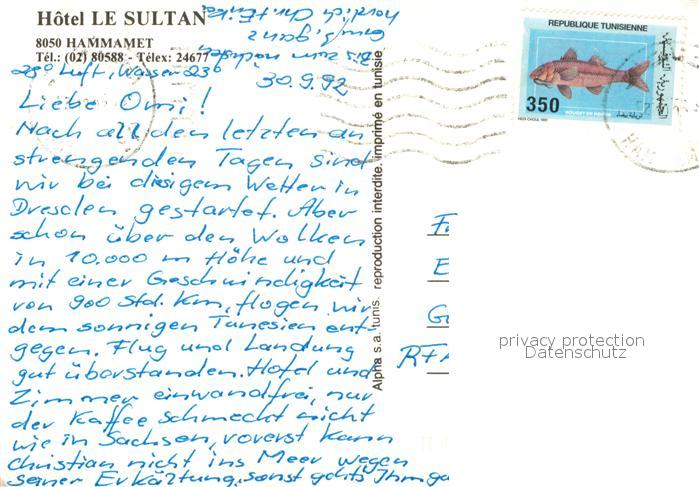 Hôtel LE SULTAN
8050 HAMMAMET
Tél.: (02) 80588 - Télex: 24677
28° Luft, Wasser 23°
30.9.92
Liebe Omi!
Nach all den letzten an
strengenden Tagen sind
wir bei diesigem Wetter in
Dresden gestartet. Aber
schon über den Wolken
in 10.000 m Höhe und
mit einer Geschwindigkeit
von 900 Std. Km, flogen wir
dem sonnigen Tunesien ent-
gegen. Flug und Landung
gut überstanden. Hotel und
Zimmer einwandfrei, nur
der Kaffee schmeckt nicht
wie in Sachsen, vorerst kann
Christian nicht ins Meer wegen
seiner Erkältung, sonst gehts Ihm ga
Bis zum nächsten
Alpha s.a. tunis. reproduction interdite. imprimé en tunisie
REPUBLIQUE TUNISIENNE
350
ROUGET DE ROCHE
F
E
G
privacy protection
Datenschutz